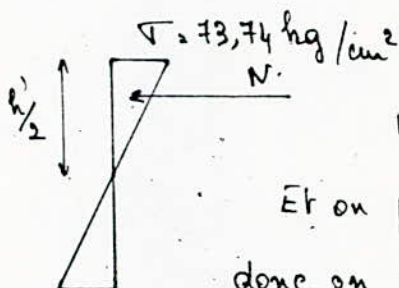 σ = 73,74 kg/cm²
N.
h'/2
Et on
donc on